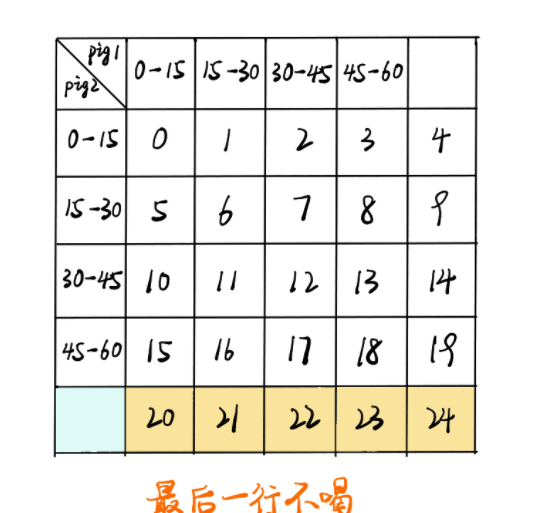 pig1
pig2
0-15 15-30 30-45 45-60
0-15 0 1 2 3 4
15-30 5 6 7 8 9
30-45 10 11 12 13 14
45-60 15 16 17 18 19
20 21 22 23 24
最后一行不喝